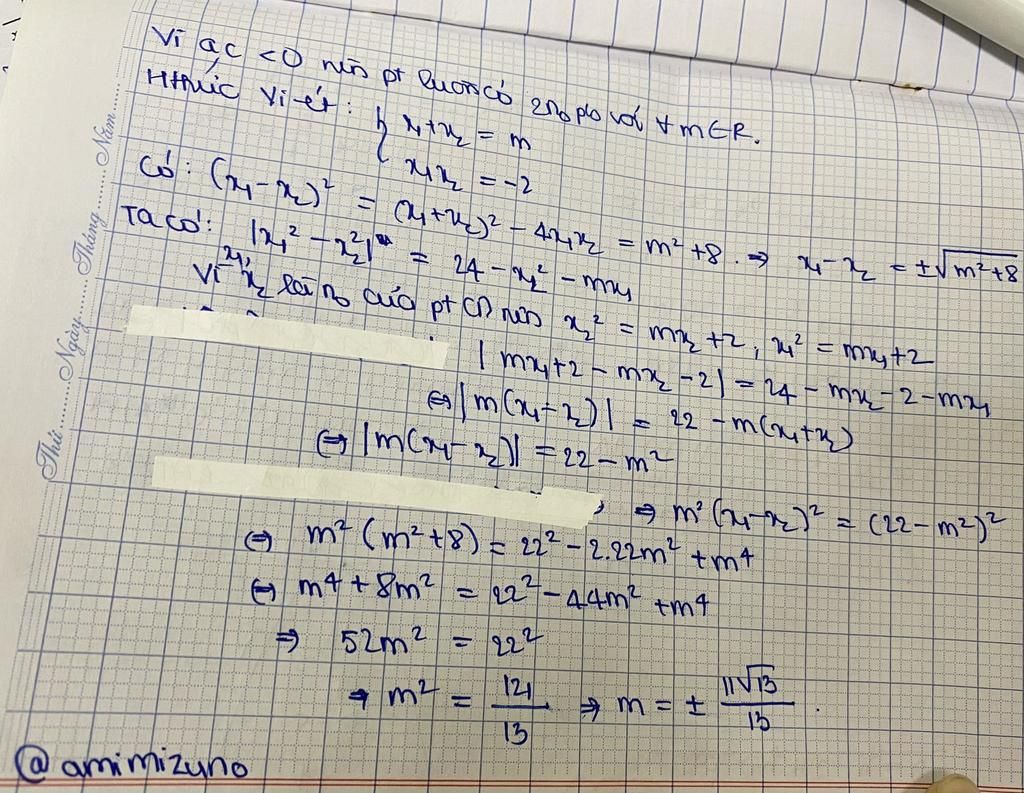 Vì ac < 0 nên pt luôn có 2 no pb với ∀m∈R.
Hthức Vi-ét: { x₁+x₂ = m
x₁x₂ = -2
Có: (x₁-x₂)² = (x₁+x₂)² - 4x₁x₂ = m²+8. ⇒ x₁-x₂ = ±√(m²+8)
Ta có: |x₁² - x₂²| = 24 - x₂² - mx₁
Vì x₁, x₂ là no của pt (1) nên x₂² = mx₂+2, x₁² = mx₁+2
|mx₁+2 - mx₂ -2| = 24 - mx₂ - 2 - mx₁
⇔ |m(x₁-x₂)| = 22 - m(x₁+x₂)
⇔ |m(x₁-x₂)| = 22 - m²
⇒ m²(x₁-x₂)² = (22-m²)²
⇔ m²(m²+8) = 22² - 2.22m² + m⁴
⇔ m⁴ + 8m² = 22² - 44m² + m⁴
⇒ 52m² = 22²
⇒ m² = 121/13 ⇒ m = ± 11√13/13.
@amimizuno
Thứ......Ngày......Tháng......Năm......